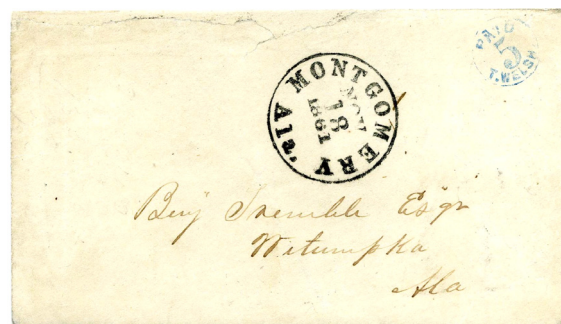 PAID
5
T. WELSH
MONTGOMERY Ala.
NOV
18
1861
Benj Tremble Esqr
Wetumpka
Ala